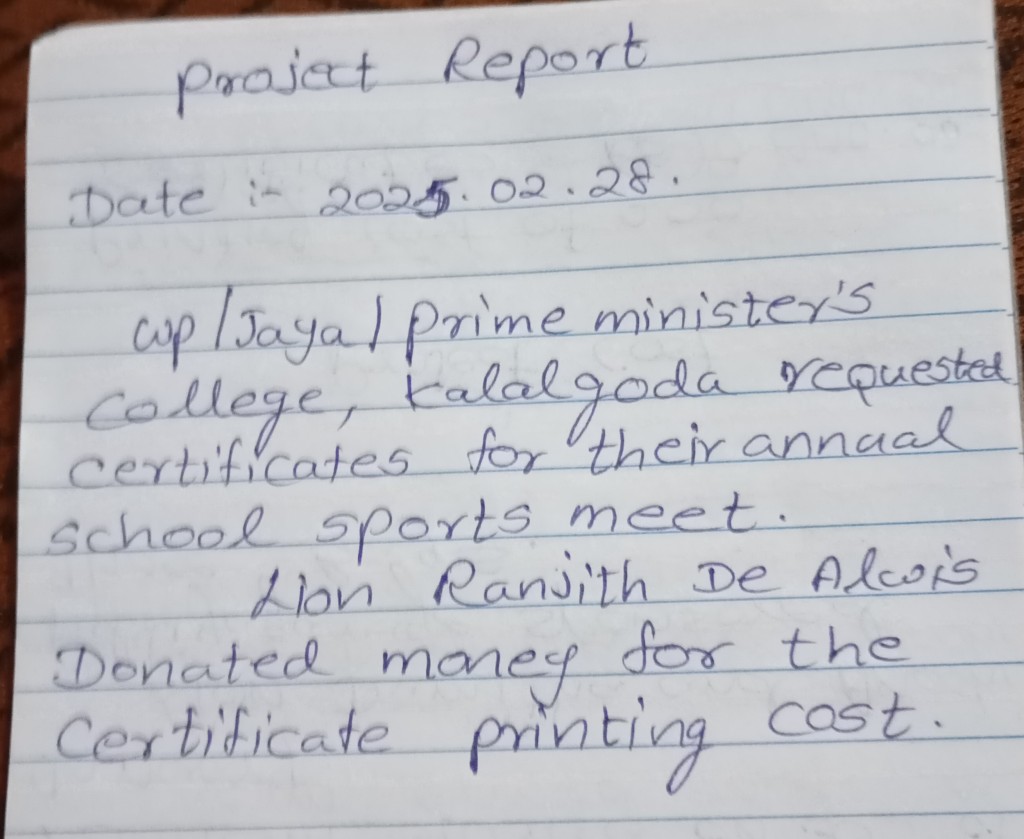 Project Report
Date :- 2025.02.28.
WP/Jaya/Prime minister's
College, Kalalgoda requested
certificates for their annual
school sports meet.
Lion Ranjith De Alwis
Donated money for the
Certificate printing cost.